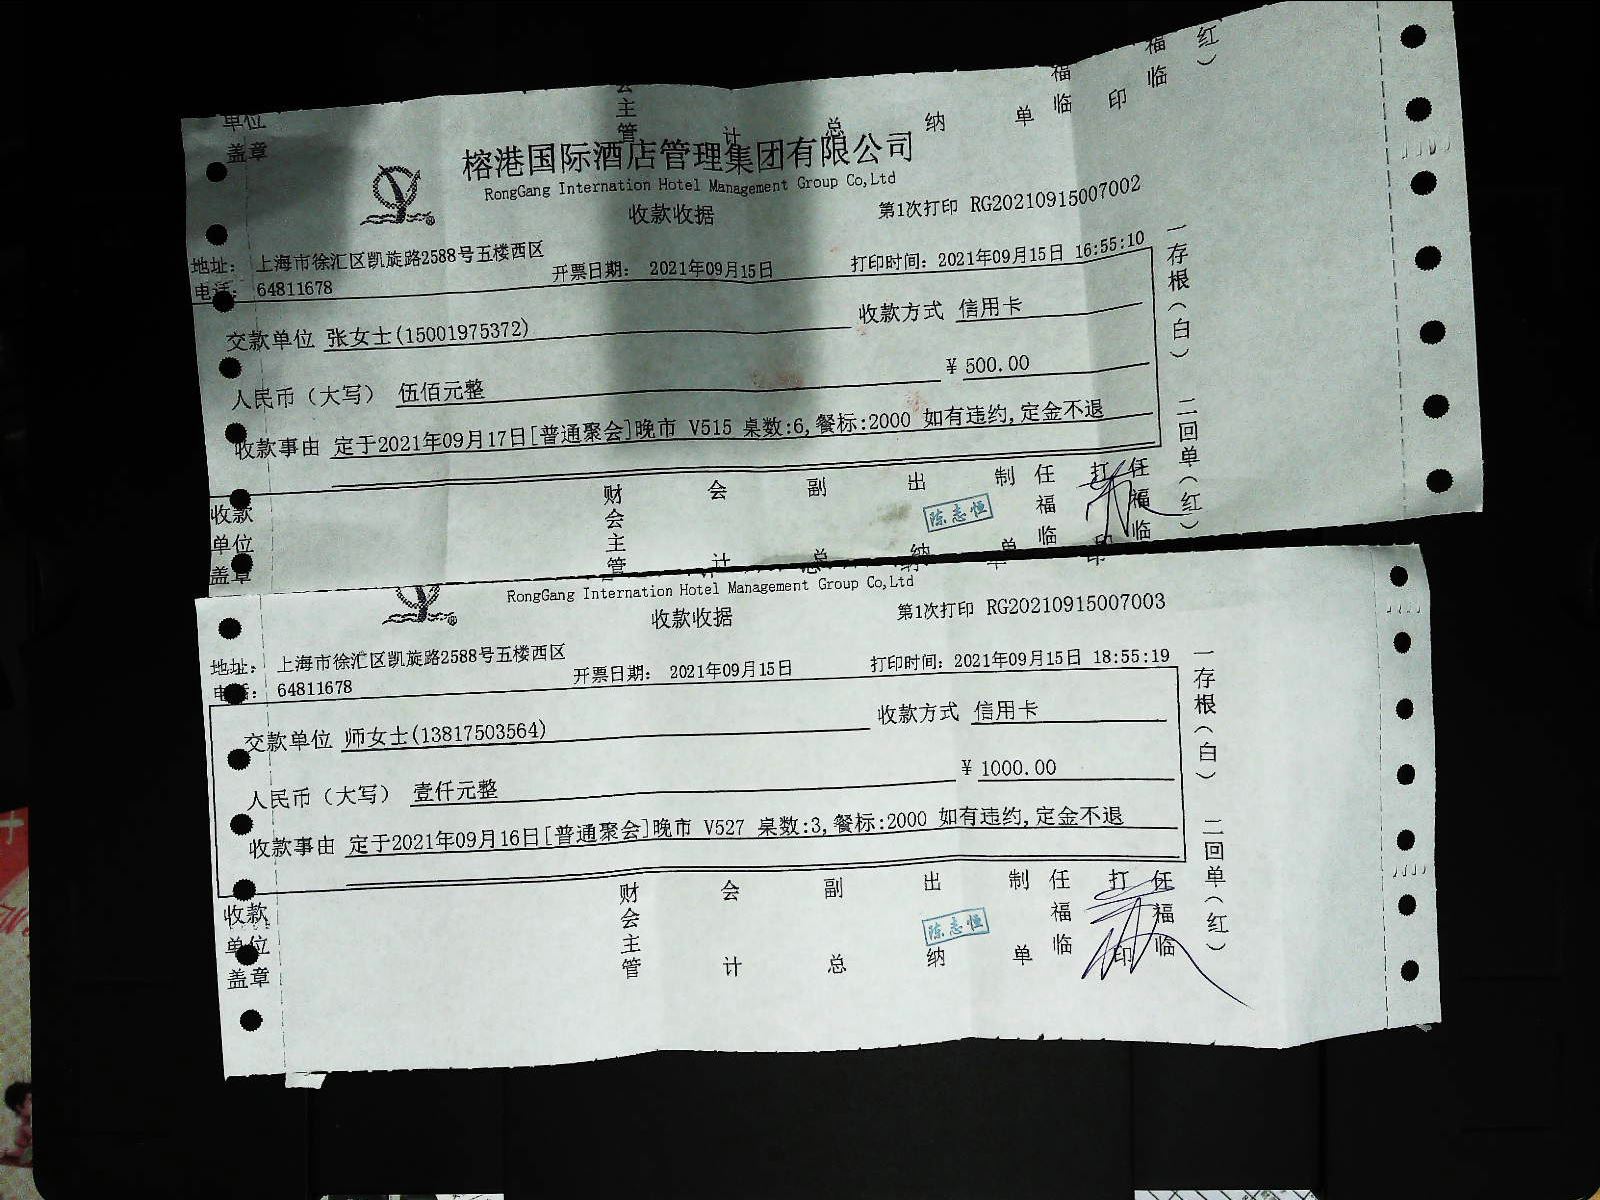 单位
盖章
会
主
管
计
总
纳
单
福
临
印
福
临
红
)
榕港国际酒店管理集团有限公司
RongGang Internation Hotel Management Group Co,Ltd
收款收据
第1次打印 RG20210915007002
地址: 上海市徐汇区凯旋路2588号五楼西区
电话: 64811678
开票日期: 2021年09月15日
打印时间: 2021年09月15日 16:55:10
交款单位 张女士(15001975372)
收款方式 信用卡
人民币(大写) 伍佰元整
¥ 500.00
收款事由 定于2021年09月17日[普通聚会]晚市 V515 桌数:6,餐标:2000 如有违约,定金不退
一存根(白)
二回单(红)
收款
单位
盖章
财会主管
会计
副总
出纳
陈志恒
制单
任福临
打印
任福临
RongGang Internation Hotel Management Group Co,Ltd
收款收据
第1次打印 RG20210915007003
地址: 上海市徐汇区凯旋路2588号五楼西区
电话: 64811678
开票日期: 2021年09月15日
打印时间: 2021年09月15日 18:55:19
交款单位 师女士(13817503564)
收款方式 信用卡
人民币(大写) 壹仟元整
¥ 1000.00
收款事由 定于2021年09月16日[普通聚会]晚市 V527 桌数:3,餐标:2000 如有违约,定金不退
一存根(白)
二回单(红)
收款
单位
盖章
财会主管
会计
副总
出纳
陈志恒
制单
任福临
打印
任福临